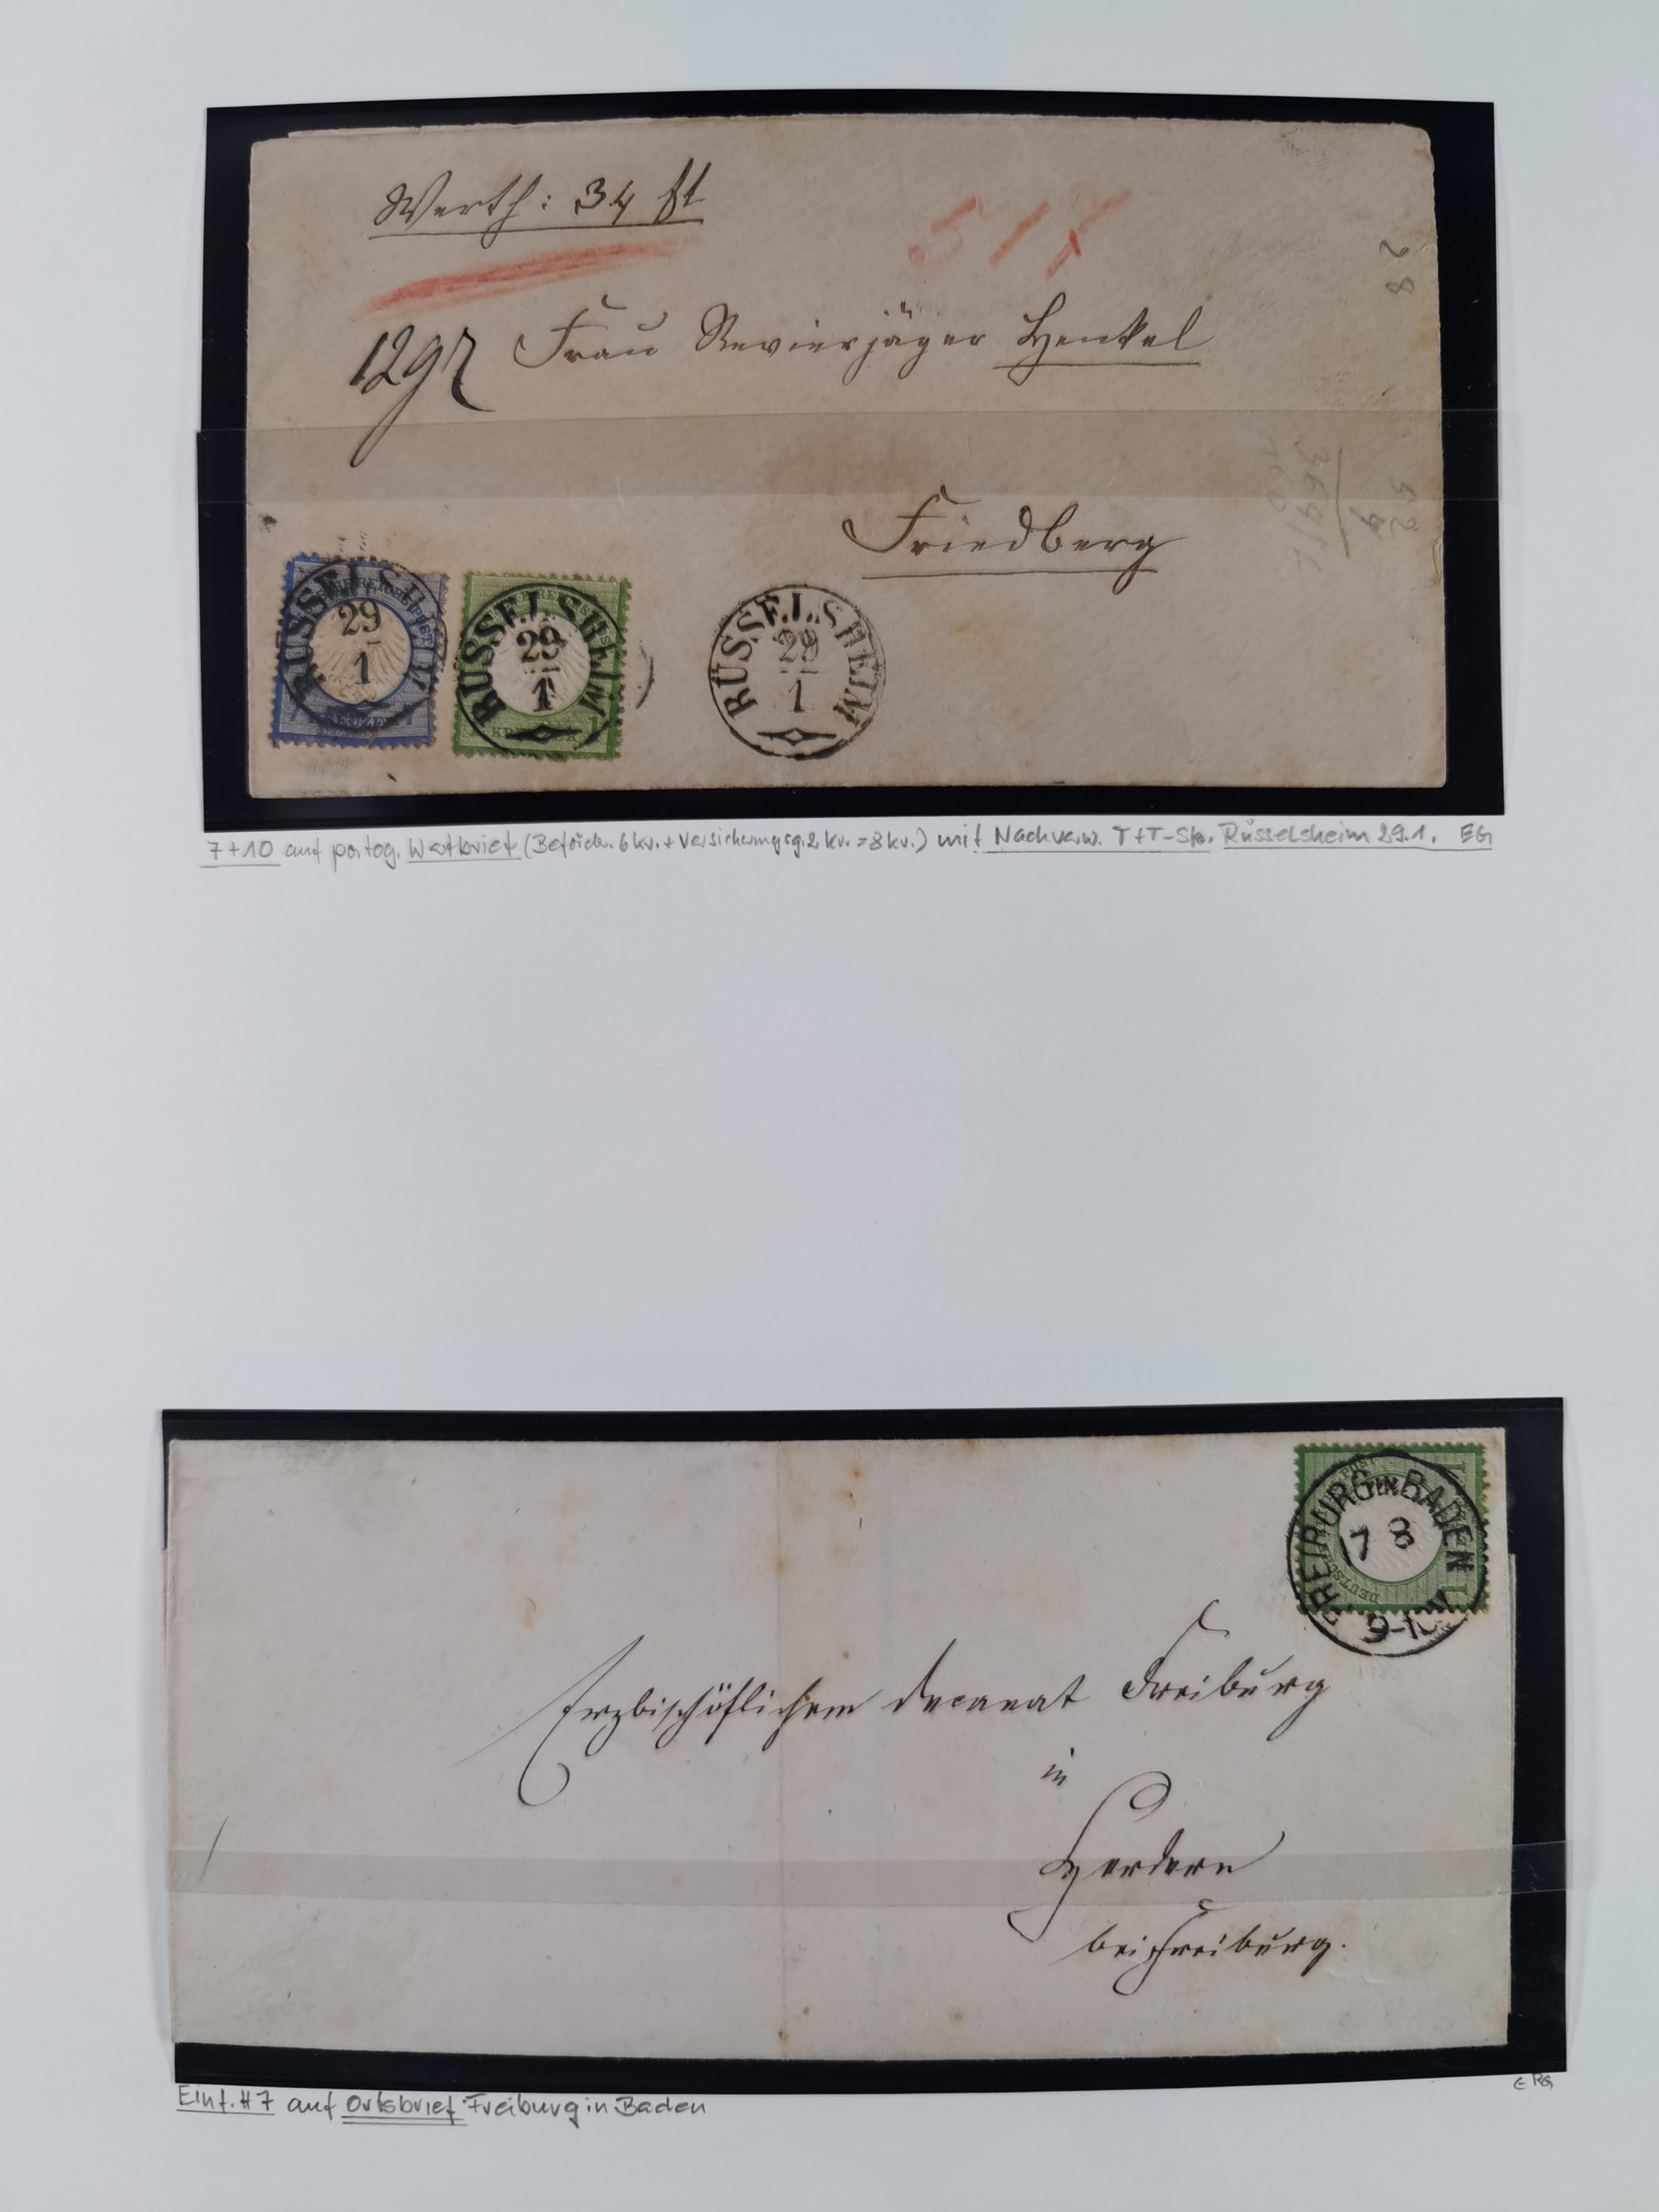 Werth: 34 fl
517
28
1297 Frau Revierjäger Henkel
Friedberg
RÜSSELSHEIM
29
1
RÜSSELSHEIM
29
1
RÜSSELSHEIM
29
1
7+10 auf portog. Wertbrief (Beförder. 6kr. + Versicherungsg. 2 kr. = 8 kr.) mit Nachverw. T+T-Stp. Rüsselsheim 29.1. EG
FREIBURG IN BADEN
7 8
9-10
Erzbischöflichem Decanat Freiburg
in
Herdern
bei Freiburg.
Einf. #7 auf Ortsbrief Freiburg in Baden